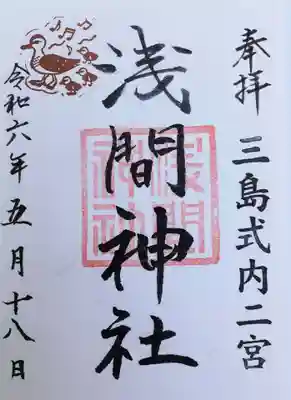 奉拝 三島式内二宮
浅間神社
令和六年五月十八日
浅間神社